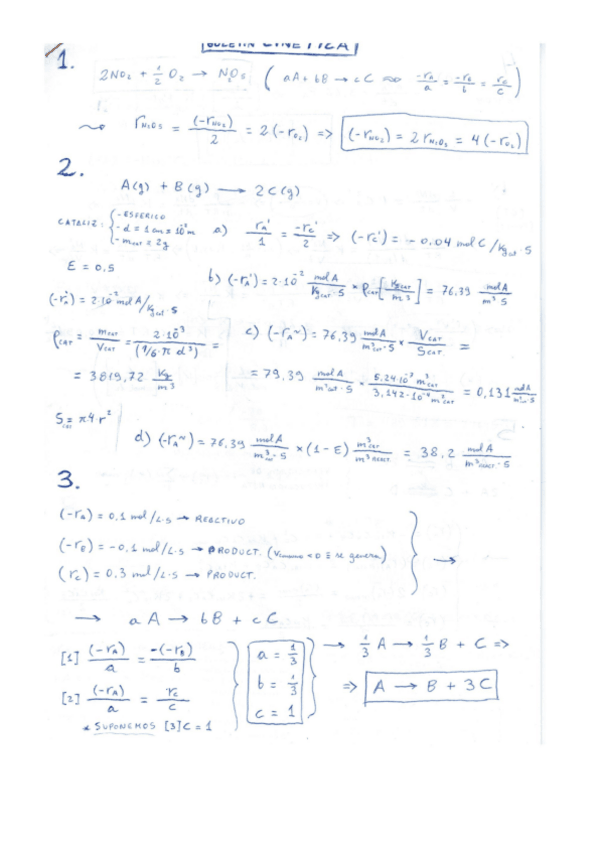 BOLETIN CINETICA
1.
2NO₂ + 1/2 O₂ → N₂O₅ ( aA + bB → cC ⇔ -rA/a = -rB/b = rC/c )
rN₂O₅ = (-rNO₂)/2 = 2(-rO₂) => (-rNO₂) = 2 rN₂O₅ = 4(-rO₂)
2.
A(g) + B(g) → 2C(g)
CATALIZ: { - ESFERICO
- d = 1 cm = 10⁻² m
- mcat = 2g
a) rA'/1 = -rC'/2 => (-rC') = -0,04 mol C/Kgcat·s
E = 0,5
b) (-rA') = 2·10⁻² mol A/Kgcat·s * ρcat [Kgcat/m³] = 76,39 mol A/m³·s
(-rA') = 2·10⁻² mol A/Kgcat·s
ρCAT = mcat/VCAT = 2·10⁻³/(1/6·π d³) =
= 3819,72 Kg/m³
c) (-rA") = 76,39 mol A/m³cat·s * VCAT/SCAT =
= 79,39 mol A/m³cat·s * 5,24·10⁻⁷ m³CAT/3,142·10⁻⁴ m²CAT = 0,131 mol A/m²·s
Scat = π4·r²
d) (-rA~) = 76,39 mol A/m³cat·s × (1-E) m³cat/m³REACT = 38,2 mol A/m³REACT·s
3.
(-rA) = 0,1 mol/L·s → REACTIVO
(-rB) = -0,1 mol/L·s → PRODUCT. (Vconsumo < 0 ≡ se genera)
(rC) = 0,3 mol/L·s → PRODUCT.
→
→ aA → bB + cC
[1] (-rA)/a = -(-rB)/b
[2] (-rA)/a = rC/c
* SUPONEMOS [3] C = 1
a = 1/3
b = 1/3
c = 1
→ 1/3 A → 1/3 B + C =>
=> A → B + 3C